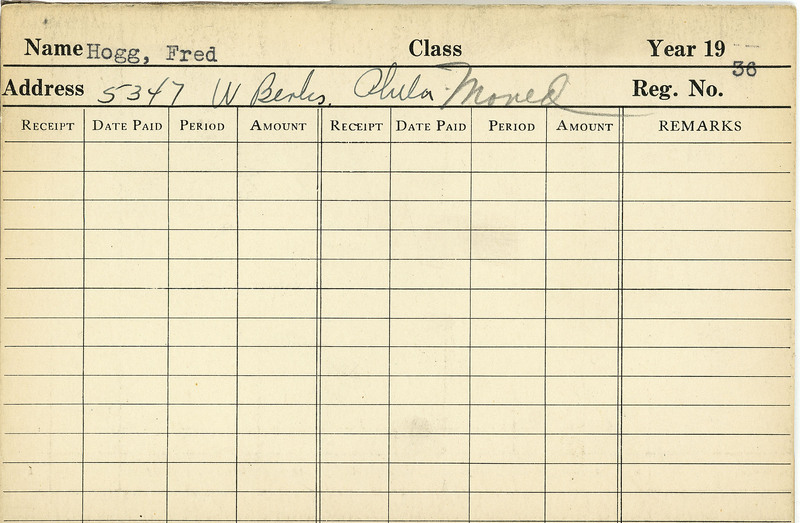 Name Hogg, Fred Class Year 19 36
Address 5347 W Berks. Phila Moved Reg. No.
RECEIPT DATE PAID PERIOD AMOUNT RECEIPT DATE PAID PERIOD AMOUNT REMARKS